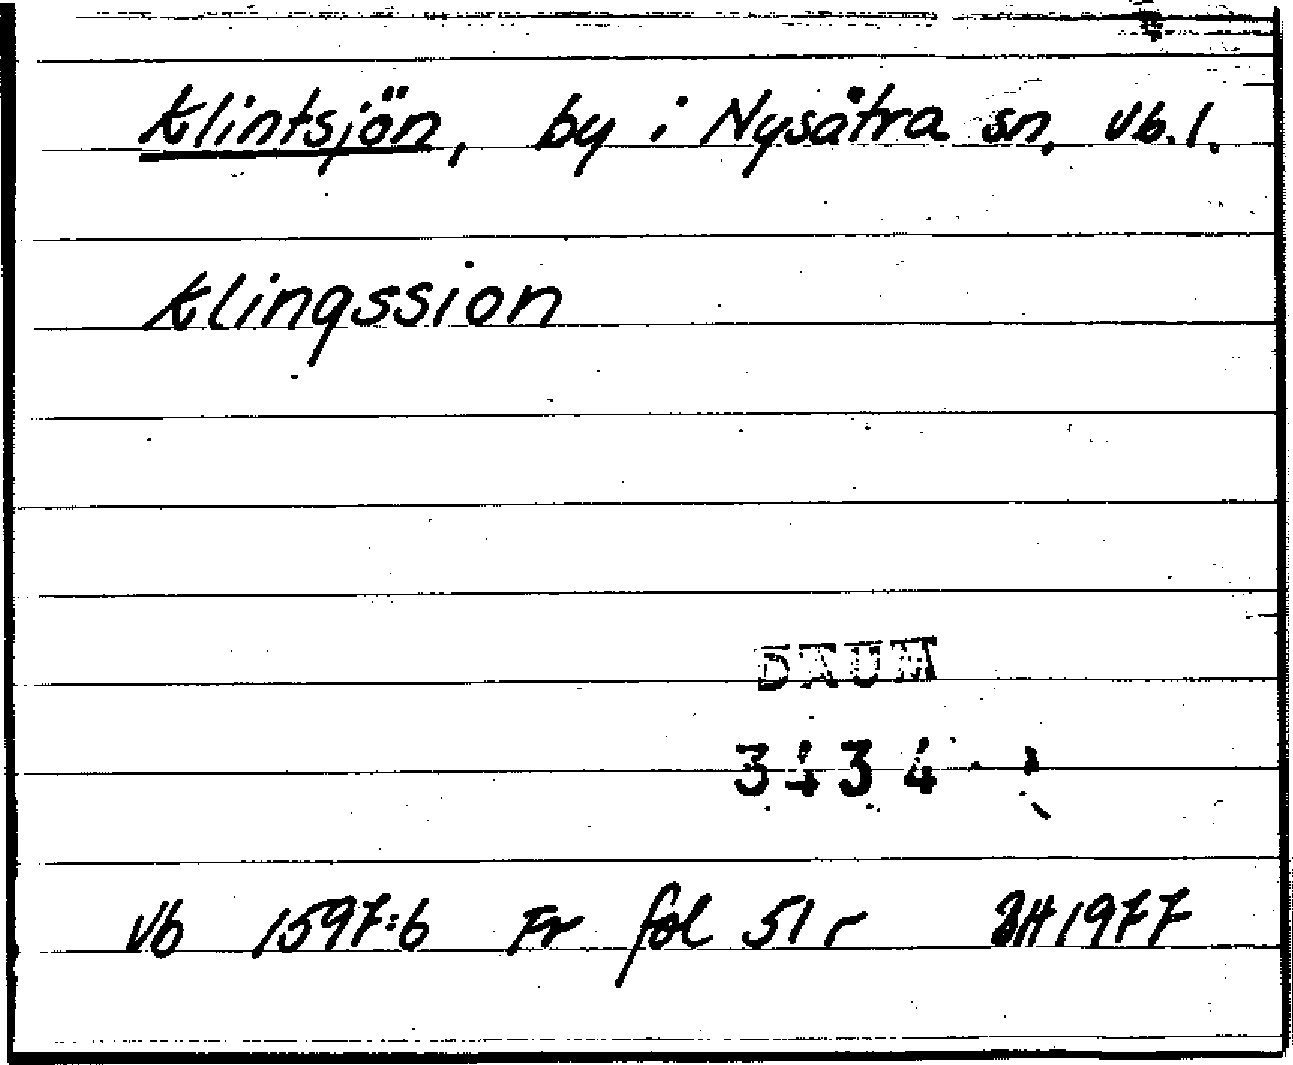 Klintsjön, by i Nysätra sn, Vb. l.
Klingssion
DAUM
3434
Vb 1597:6 Fr fol 51 r BH 1977